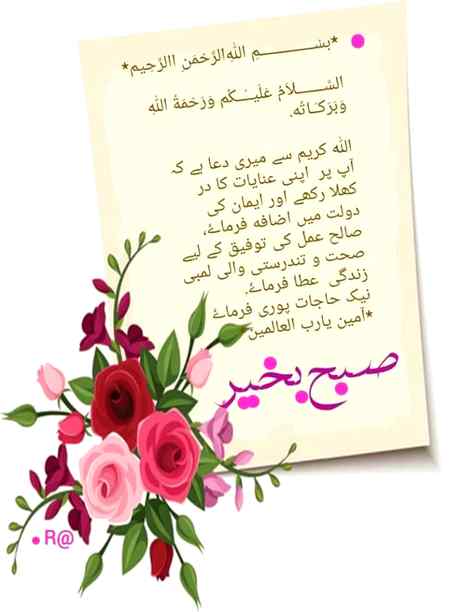 *بســـــــــمِ اللهِ الرَّحْمَنِ االرَّحِيم*
السَّـــلاَمُ عَلَيـــْــكُم وَرَحْمَةُ اللهِ
وَبَرَكـَـاتُه.
اللہ کریم سے میری دعا ہے کہ
آپ پر اپنی عنایات کا در
کھلا رکھے اور ایمان کی
دولت میں اضافہ فرمائے،
صالح عمل کی توفیق کے لیے
صحت و تندرستی والی لمبی
زندگی عطا فرمائے.
نیک حاجات پوری فرمائے
*آمین یارب العالمین
صبح بخیر
R@